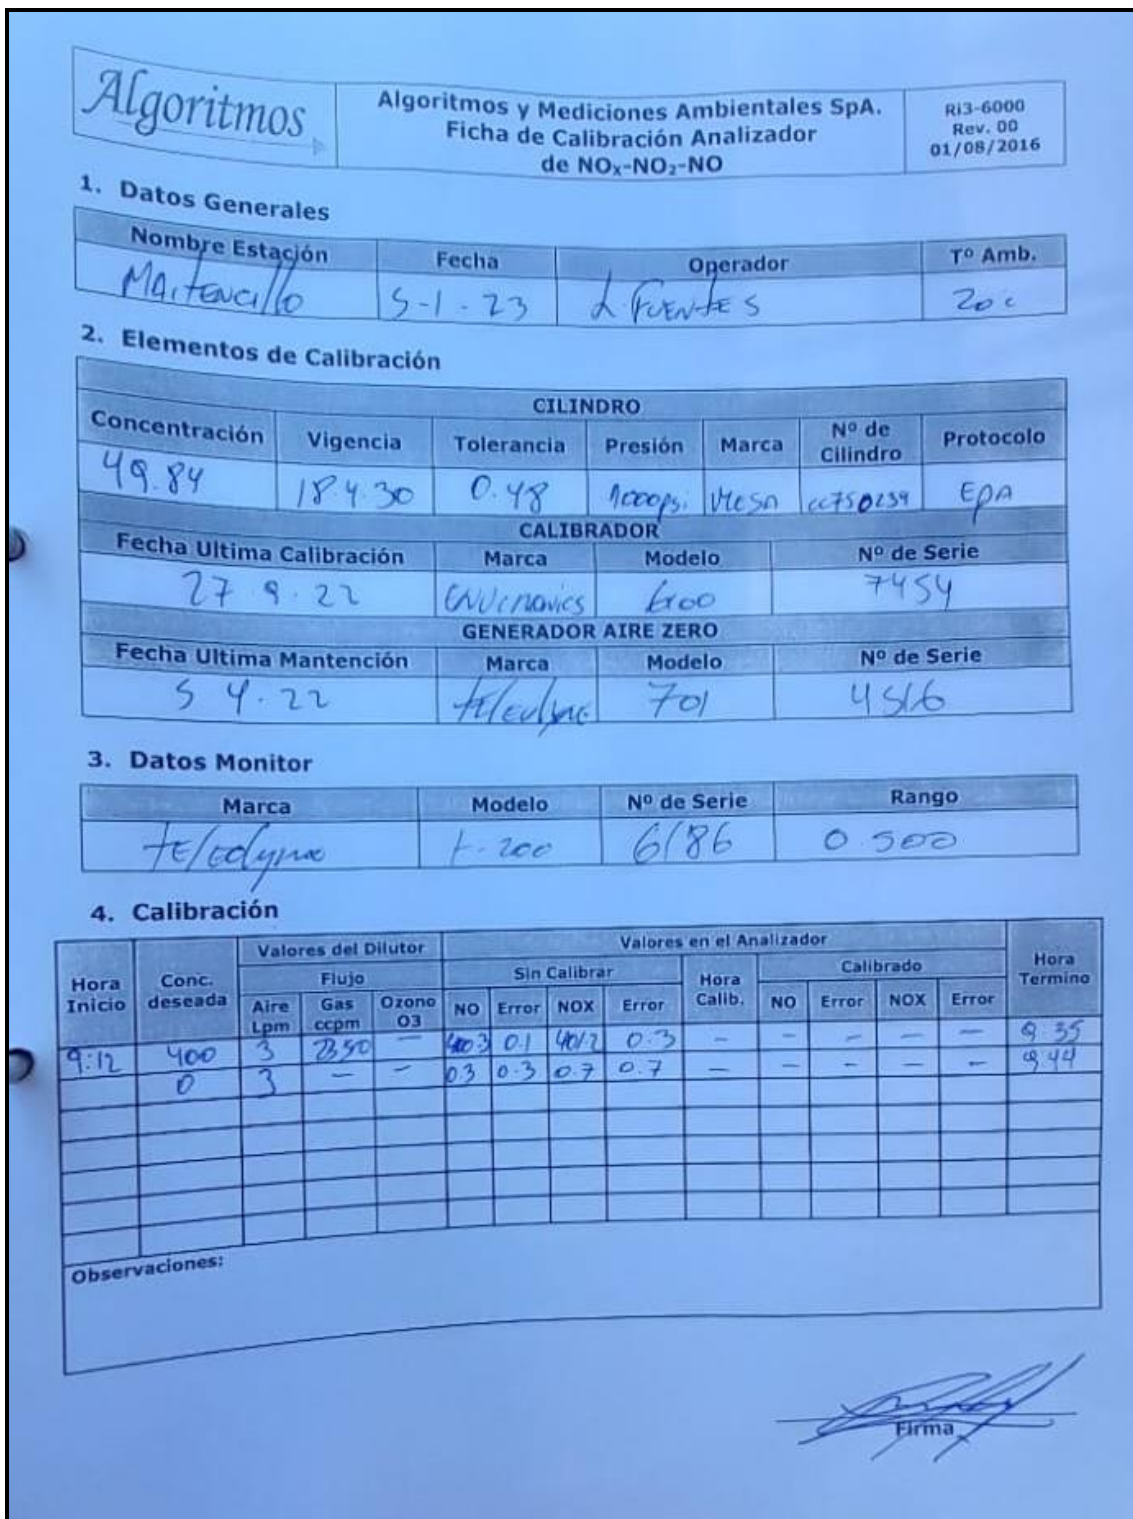 Algoritmos
Algoritmos y Mediciones Ambientales SpA.
Ficha de Calibración Analizador
de NOx-NO₂-NO
Ri3-6000
Rev. 00
01/08/2016
1. Datos Generales
Nombre Estación Fecha Operador Tº Amb.
Maitencillo 5-1-23 L FUENTES 20 c
2. Elementos de Calibración
CILINDRO
Concentración Vigencia Tolerancia Presión Marca Nº de Cilindro Protocolo
49.84 18.4.30 0.48 1000psi EPA
CALIBRADOR
Fecha Ultima Calibración Marca Modelo Nº de Serie
27.9.22 7454
GENERADOR AIRE ZERO
Fecha Ultima Mantención Marca Modelo Nº de Serie
5 4.22 teledyne 701 4516
3. Datos Monitor
Marca Modelo Nº de Serie Rango
teledyne t-200 6186 0.500
4. Calibración
Hora Inicio Conc. deseada Valores del Dilutor Valores en el Analizador Hora Termino
Flujo Sin Calibrar Hora Calib. Calibrado
Aire Lpm Gas ccpm Ozono O3 NO Error NOX Error NO Error NOX Error
9:12 400 3 400.3 0.1 401.2 0.3 - - - - - 9.35
0 3 - - 0.3 0.3 0.7 0.7 - - - - - 9.44
Observaciones:
Firma